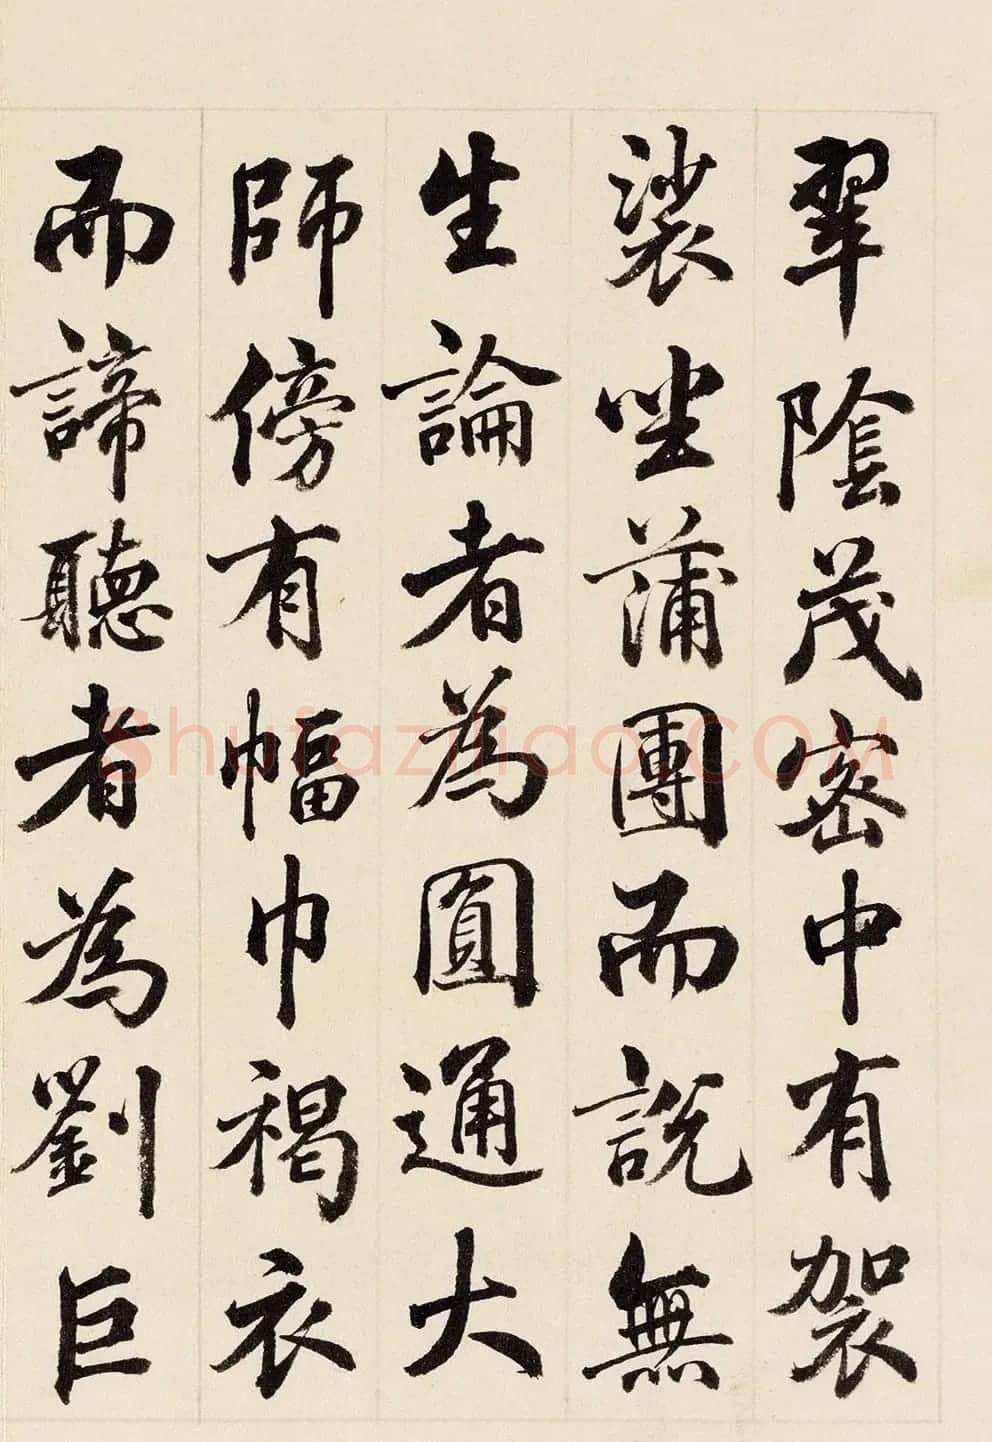 翠陰茂密中有袈
裟坐蒲團而說無
生論者為圓通大
師傍有幅巾褐衣
而諦聽者為劉巨
Shufaziliao.COM